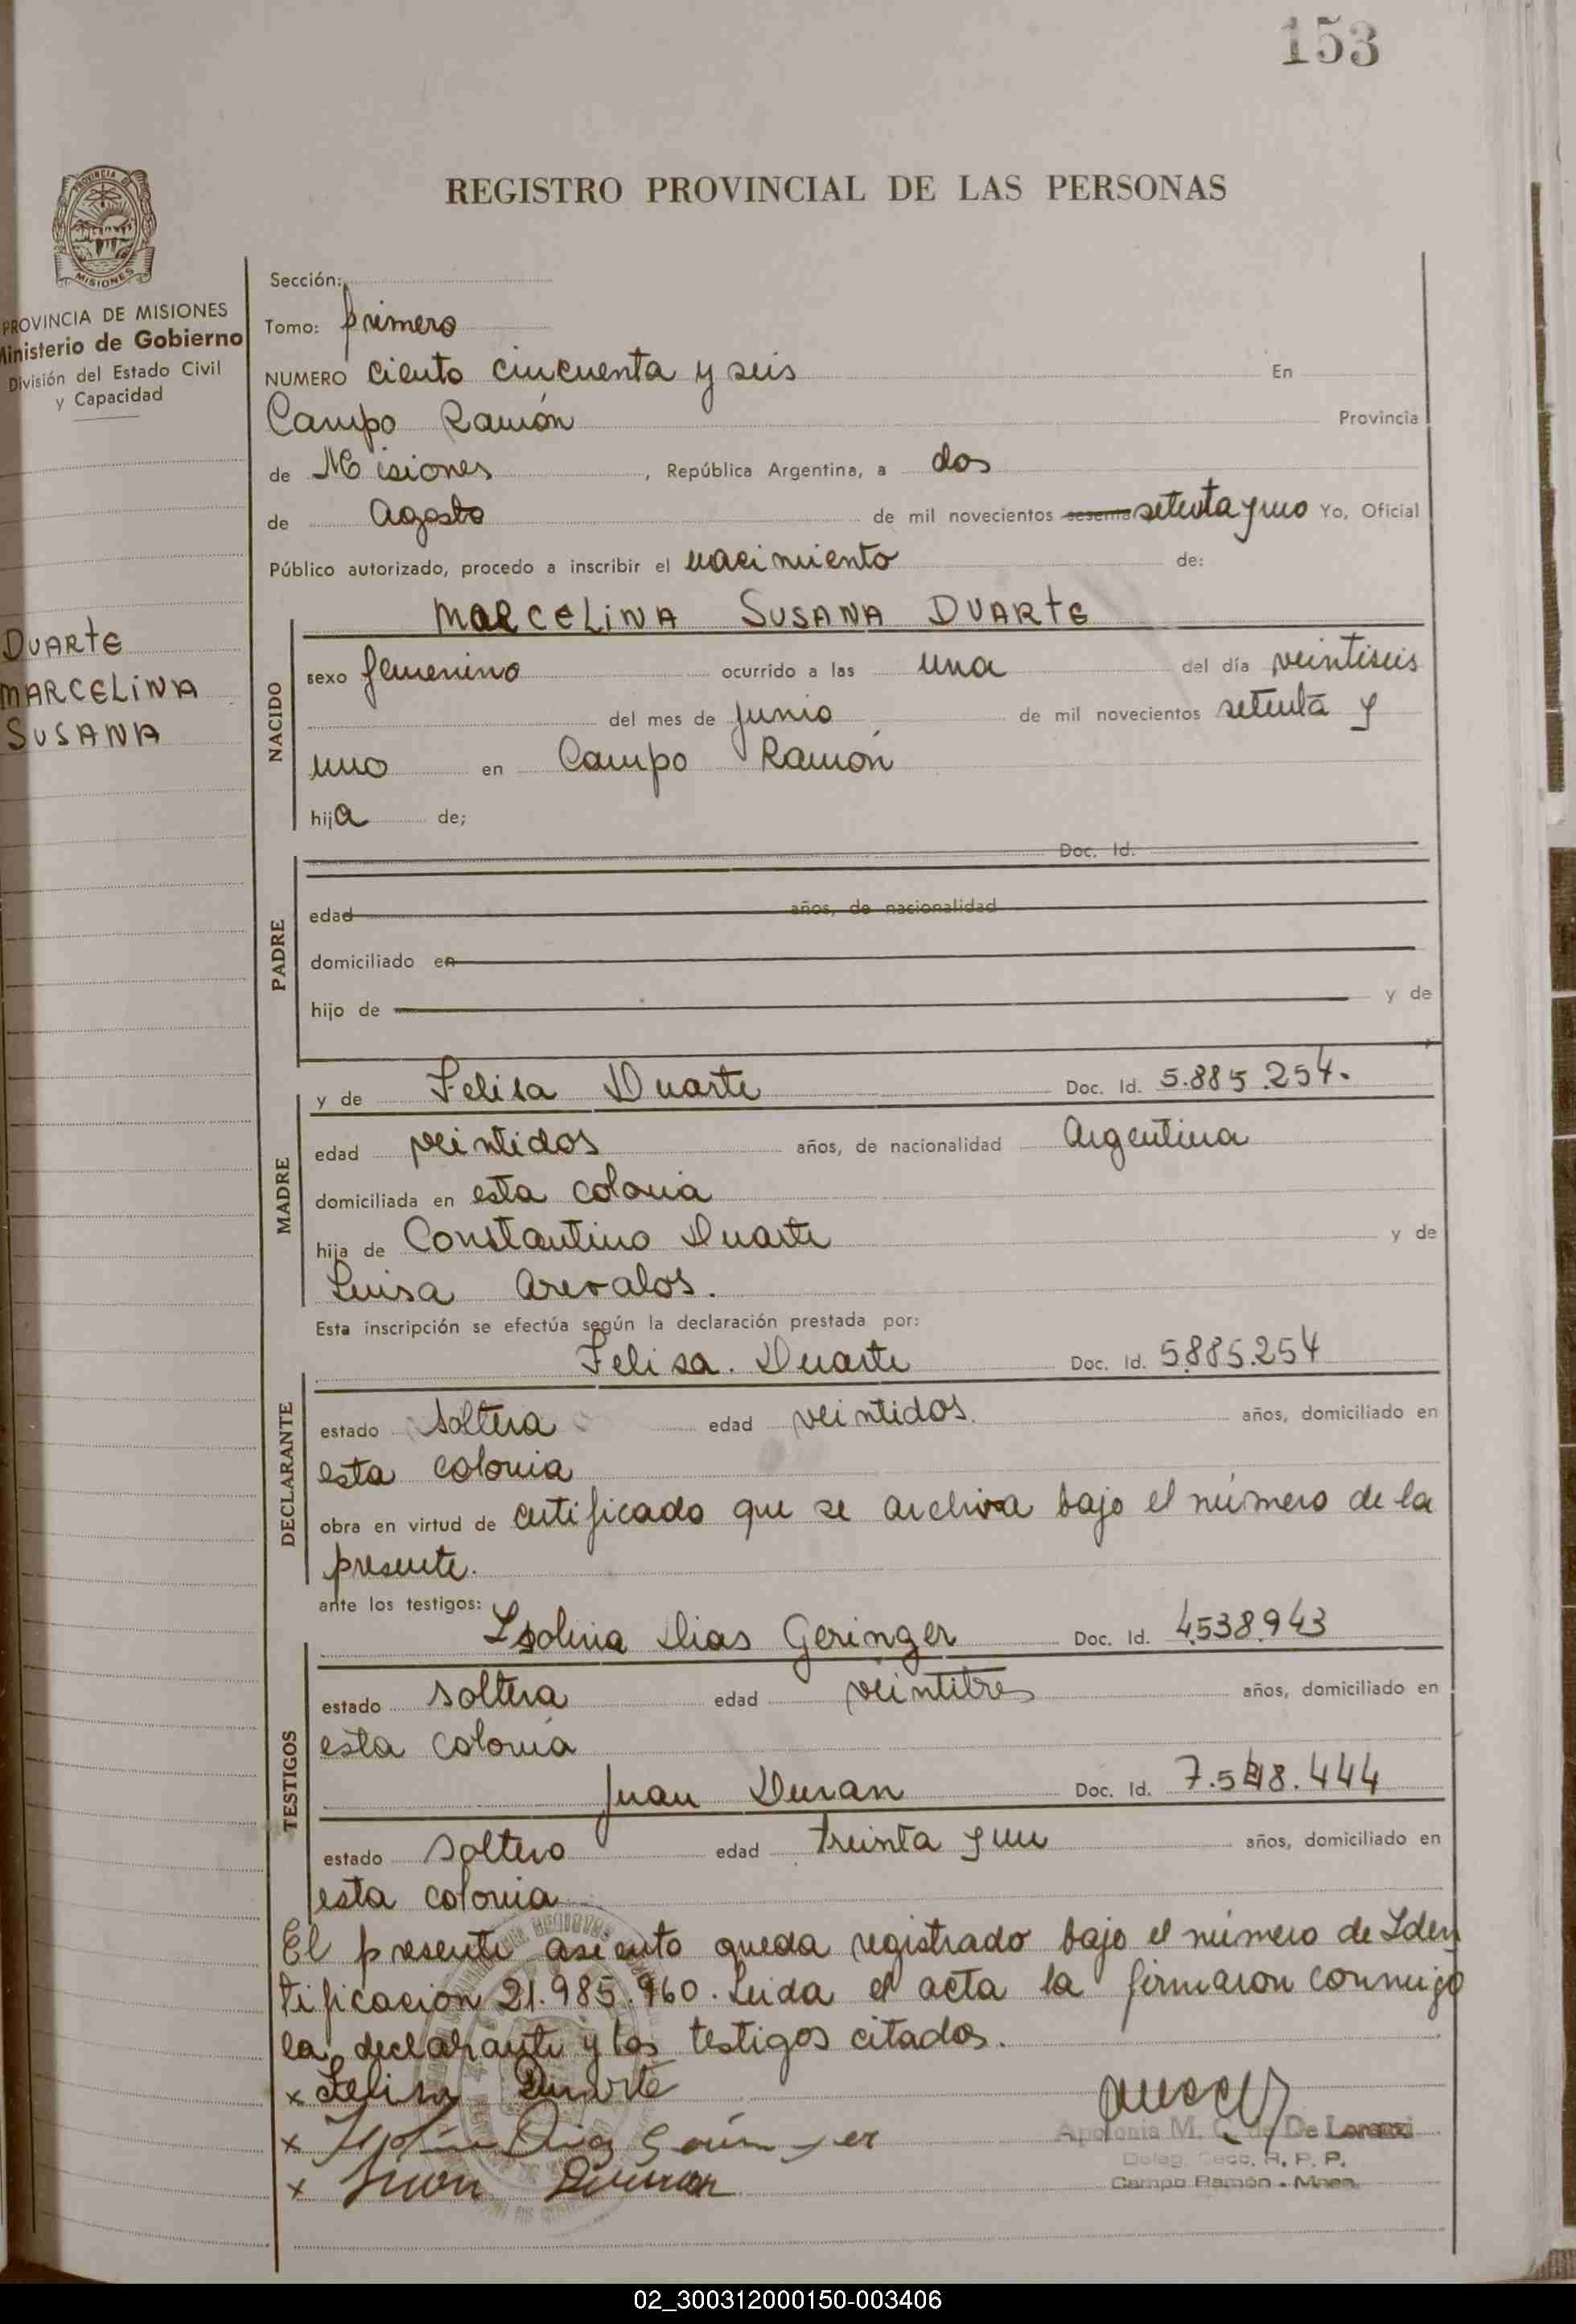 153
REGISTRO PROVINCIAL DE LAS PERSONAS
PROVINCIA DE
MISIONES
PROVINCIA DE MISIONES
Ministerio de Gobierno
División del Estado Civil
y Capacidad
DUARTE
MARCELINA
SUSANA
Sección:
Tomo: primero
NUMERO ciento cincuenta y seis En
Campo Ramón Provincia
de Misiones, República Argentina, a dos
de Agosto de mil novecientos sesenta setenta y uno Yo, Oficial
Público autorizado, procedo a inscribir el nacimiento de:
MARCELINA SUSANA DUARTE
NACIDO
sexo femenino ocurrido a las una del día veintiseis
del mes de junio de mil novecientos setenta y
uno en Campo Ramón
hija de;
PADRE
Doc. Id.
edad años, de nacionalidad
domiciliado en
hijo de y de
MADRE
y de Felisa Duarte Doc. Id. 5.885.254.
edad veintidos años, de nacionalidad Argentina
domiciliada en esta colonia
hija de Constantino Duarte y de
Luisa Arevalos.
Esta inscripción se efectúa según la declaración prestada por:
DECLARANTE
Felisa. Duarte Doc. Id. 5.885.254
estado soltera edad veintidos. años, domiciliado en
esta colonia
obra en virtud de certificado que se archiva bajo el número de la
presente.
ante los testigos:
TESTIGOS
Isolina Dias Geringer Doc. Id. 4.538.943
estado soltera edad veintitres años, domiciliado en
esta colonia
Juan Duran Doc. Id. 7.548.444
estado soltero edad treinta y un años, domiciliado en
esta colonia
El presente asiento queda registrado bajo el número de Iden
tificacion 21.985.960. Leida el acta la firmaron conmigo
la declarante y los testigos citados.
x Felisa Duarte
x Diaz
x Juan Duran
Apolonia M. C. de De Lorenzi
Deleg. Secc. R. P. P.
Campo Ramón - Mnes.
02_300312000150-003406